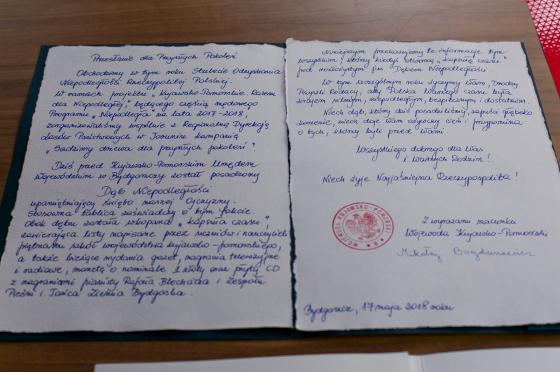 Przesłanie dla Przyszłych Pokoleń
Obchodzimy w tym roku Stulecie Odzyskania
Niepodległości Rzeczypospolitej Polskiej.
W ramach projektu "Kujawsko-Pomorskie Razem
dla Niepodległej", będącego częścią rządowego
Programu "Niepodległa na lata 2017-2018,
zorganizowaliśmy wspólnie z Regionalną Dyrekcją
Lasów Państwowych w Toruniu kampanię
"Sadzimy drzewa dla przyszłych pokoleń".
Dziś przed Kujawsko-Pomorskim Urzędem
Wojewódzkim w Bydgoszczy został posadzony
Dąb Niepodległości
upamiętniający święto naszej Ojczyzny.
Stosowna tablica poświadcza o tym fakcie.
Obok dębu została wkopana "kapsuła czasu"
zawierająca listy napisane przez uczniów i nauczycieli
piętnastu szkół województwa kujawsko-pomorskiego,
a także bieżące wydania gazet, nagrania telewizyjne
i radiowe, monetę o nominale 1 złoty oraz płyty CD
z nagraniami pianisty Rafała Blechacza i Zespołu
Pieśni i Tańca Ziemia Bydgoska.
Niniejszym przekazujemy te informacje tym
wszystkim, którzy kiedyś otworzą "kapsułę czasu"
pod rozłożystym już Dębem Niepodległości
W tym szczególnym roku życzymy Wam, Drodzy
Rodacy, aby Polska Waszego czasu była
krajem silnym, niepodległym, bezpiecznym i dostatnim.
Niech dąb, który dziś posadziliśmy, zapuści głęboko
korzenie, niech daje Wam cień i przypomina
o tych, którzy byli przed Wami.
Wszystkiego dobrego dla Was
i Waszych Rodzin!
Niech żyje Najjaśniejsza Rzeczypospolita!
Z wyrazami szacunku
Wojewoda Kujawsko-Pomorski
Mikołaj Bogdanowicz
Bydgoszcz, 17 maja 2018 roku